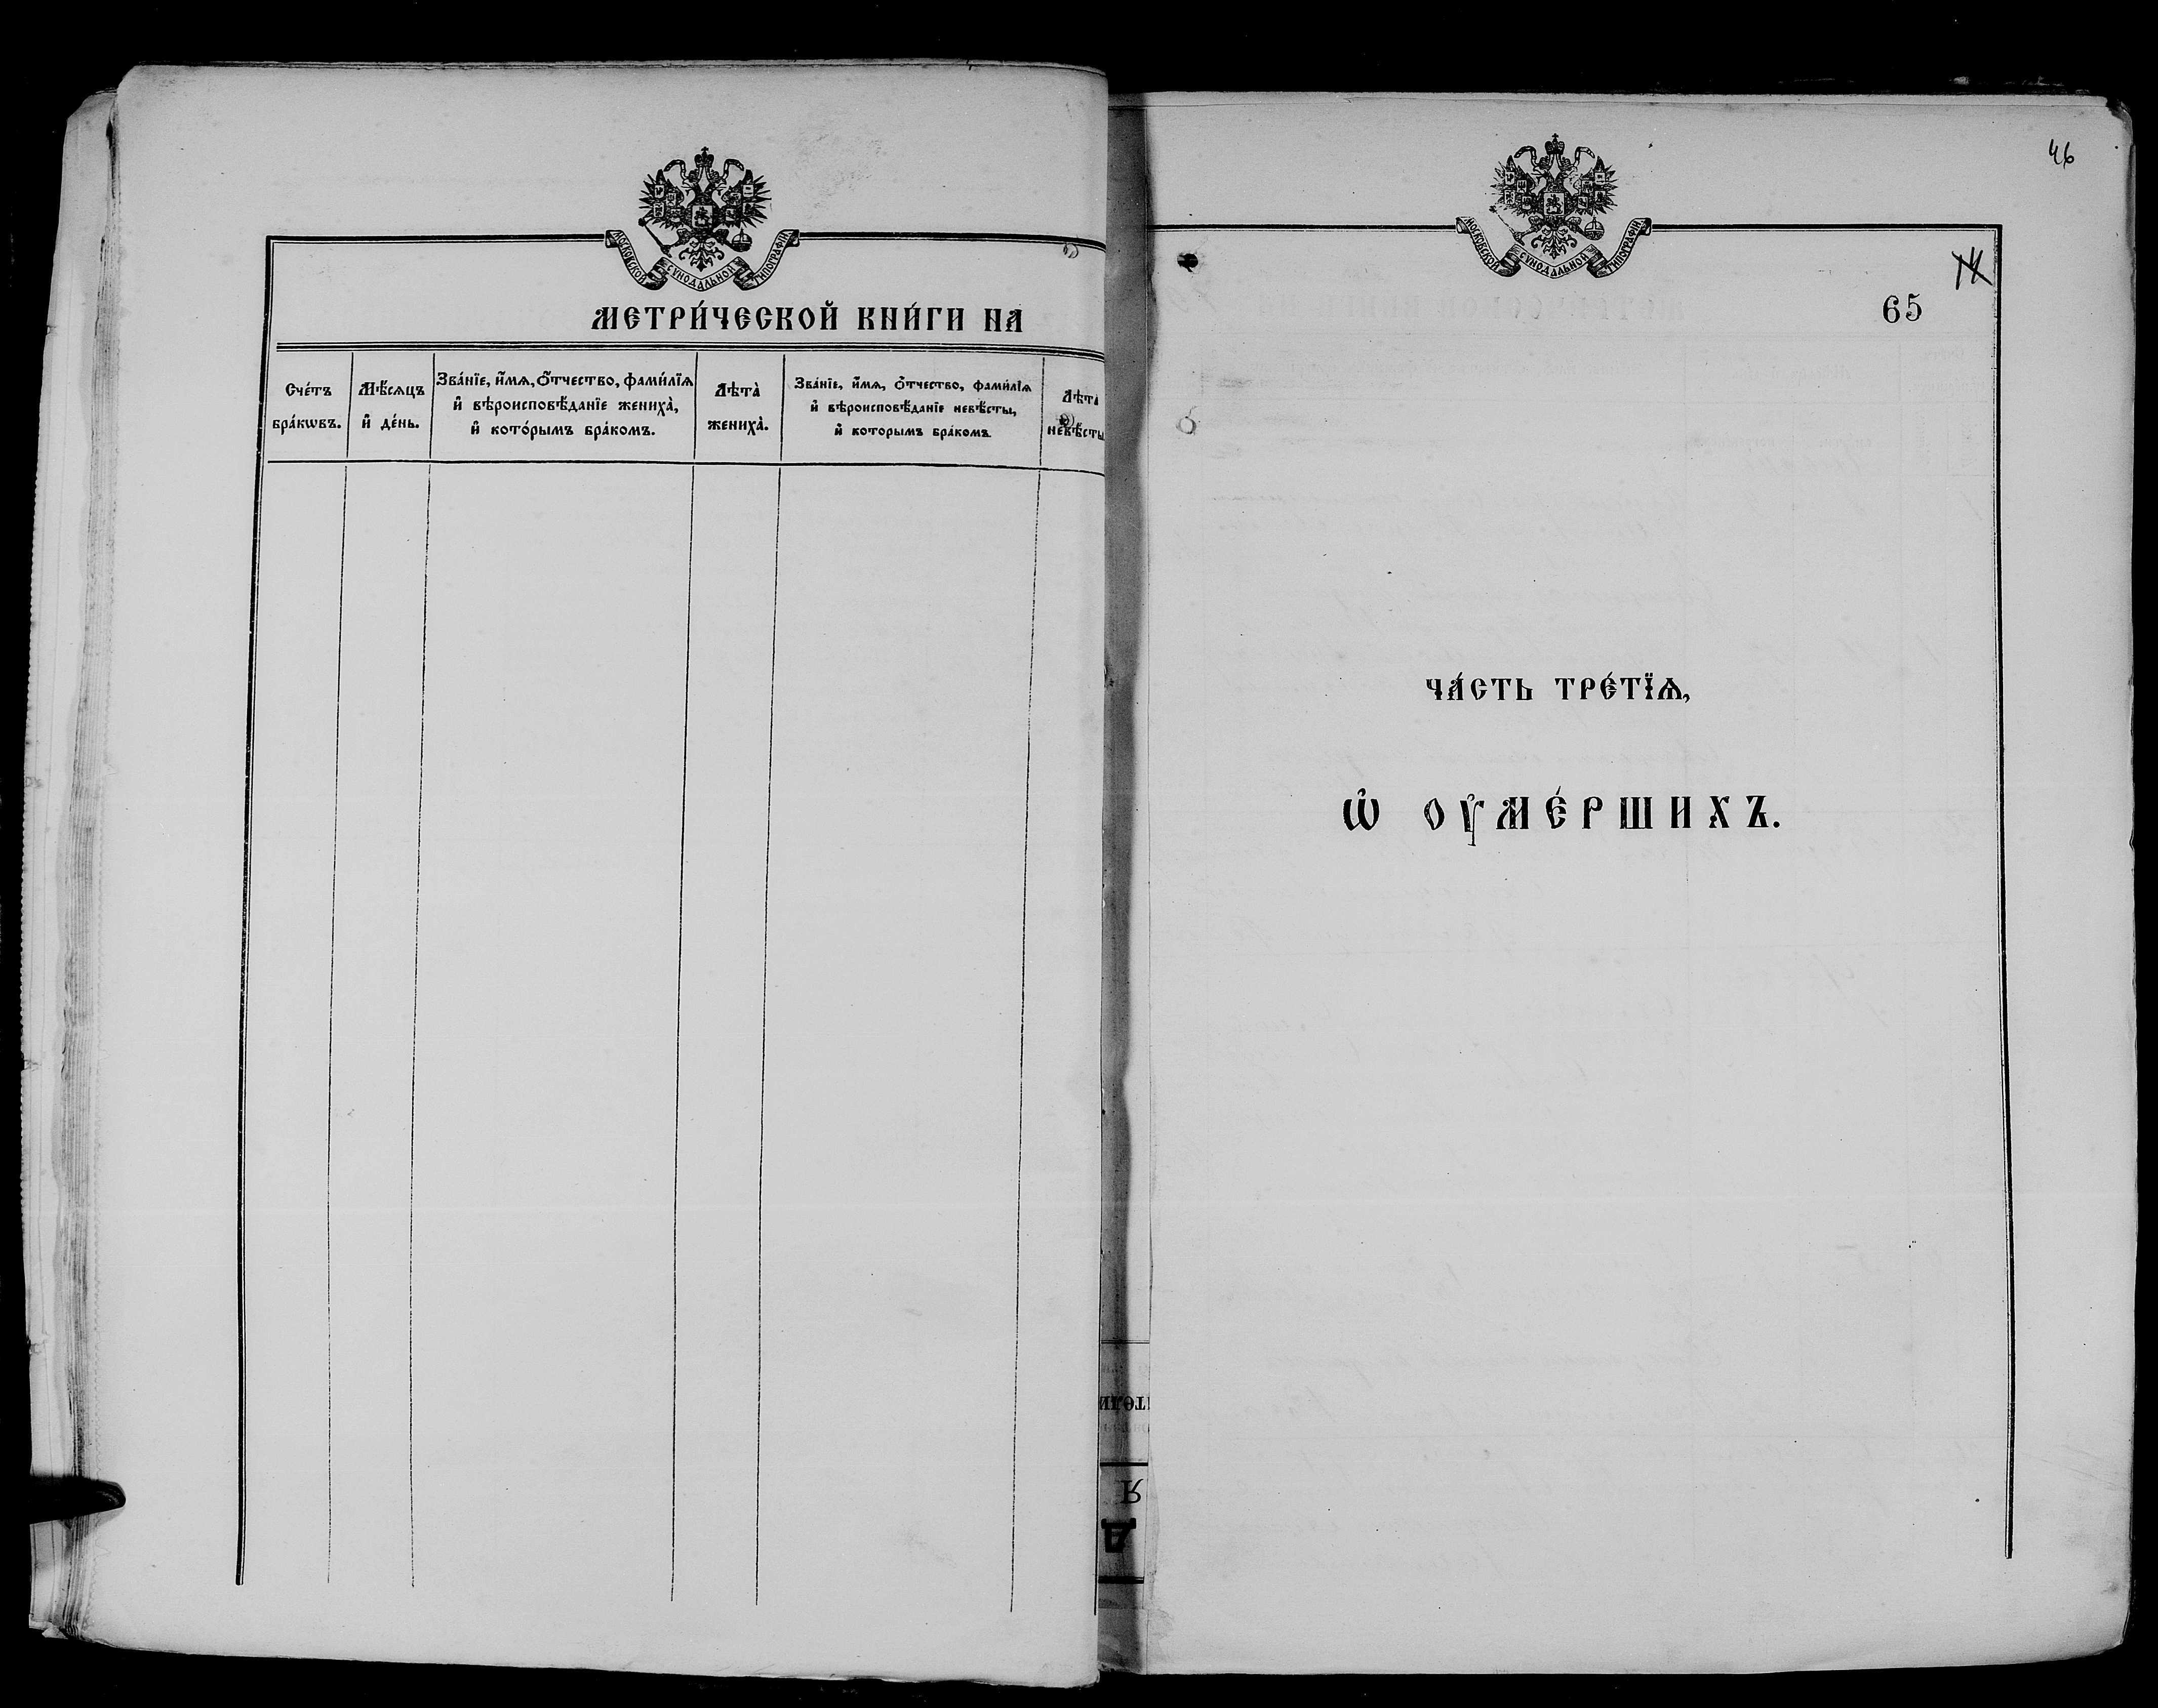 МОСКОВСКОЙ СѴНОДАЛЬНОЙ ТИПОГРАФІИ.
МЕТРИ́ЧЕСКОЙ КНИ́ГИ НА
Сче́тъ
бра́кѡвъ.
Мѣ́сяцъ
и҆ де́нь.
Зва́нїе, и҆́мѧ, ѻ҆́тчество, фами́лїѧ
и҆ вѣроисповѣ́данїе жениха̀,
и҆ кото́рымъ бра́комъ.
Лѣта̀
жениха̀.
Зва́нїе, и҆́мѧ, ѻ҆́тчество, фами́лїѧ
и҆ вѣроисповѣ́данїе невѣ́сты,
и҆ которымъ бра́комъ.
Лѣта̀
невѣ́сты
46
МОСКОВСКОЙ СѴНОДАЛЬНОЙ ТИПОГРАФІИ.
14
65
ЧА́СТЬ ТРЕ́ТЇѦ,
Ѡ҆ ОУ҆МЕ́РШИХЪ.